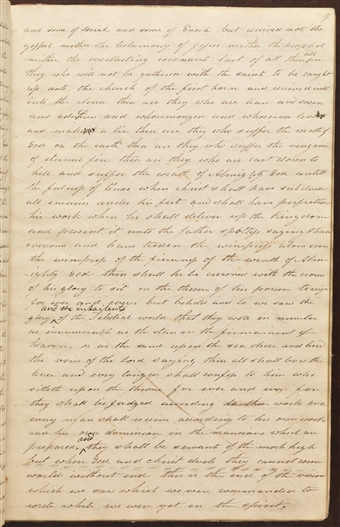 9
and some of Esaiah and some of Enoch but received not the
gospel neither the testimony of jesus neither the prophets
neither the everlasting covenant last of all
all
they who will not be gathered with the saints to be caught
up unto the church of the first born and received
into the cloud these are they who are liars and
and and whoremongers and whosoever loves
and makes a lie these are they who suffer the wrath of
God on the earth these are they who suffer the vengence
of eternal fire these are they who are cast down to
hell and suffer the wrath of Almighty God until
the fulness of times when christ shall have subdued
all enemies under his feet and shall have perfected
his work when he shall deliver up the kingdom
and present it unto the father spotless saying I have
overcome and have trodden the winepress alone even
the winepress of the fierceness of the wrath of Alm
ighty God then shall he be crowned with the crown
of his glory to sit on the throne of his power to reign
for ever and ever. but behold and lo we saw the
and the inhabitants
glory of the world that they were in number
as innumerable as the stars in the firmament of
heaven or as the sand upon the sea shore and heard
the voice of the Lord saying these all shall bow the
knee and every tongue shall confess to him who
sitteth upon the throne for ever and ever for
they shall be judged according to their work and
every man shall receive according to his own works
and his own dominion in the mansions which are
prepared and they shall be servants of the most high
but where God and christ dwell they cannot come
worlds without end this is the end of the vision
which we saw which we were commanded to
write while we were yet in the spirit.